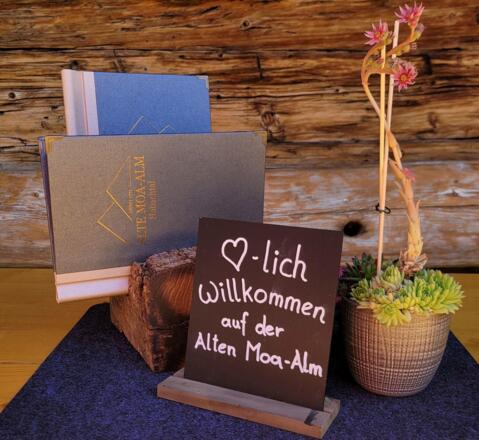 ALTE MOA-ALM
♡-lich
Willkommen
auf der
Alten Moa-Alm